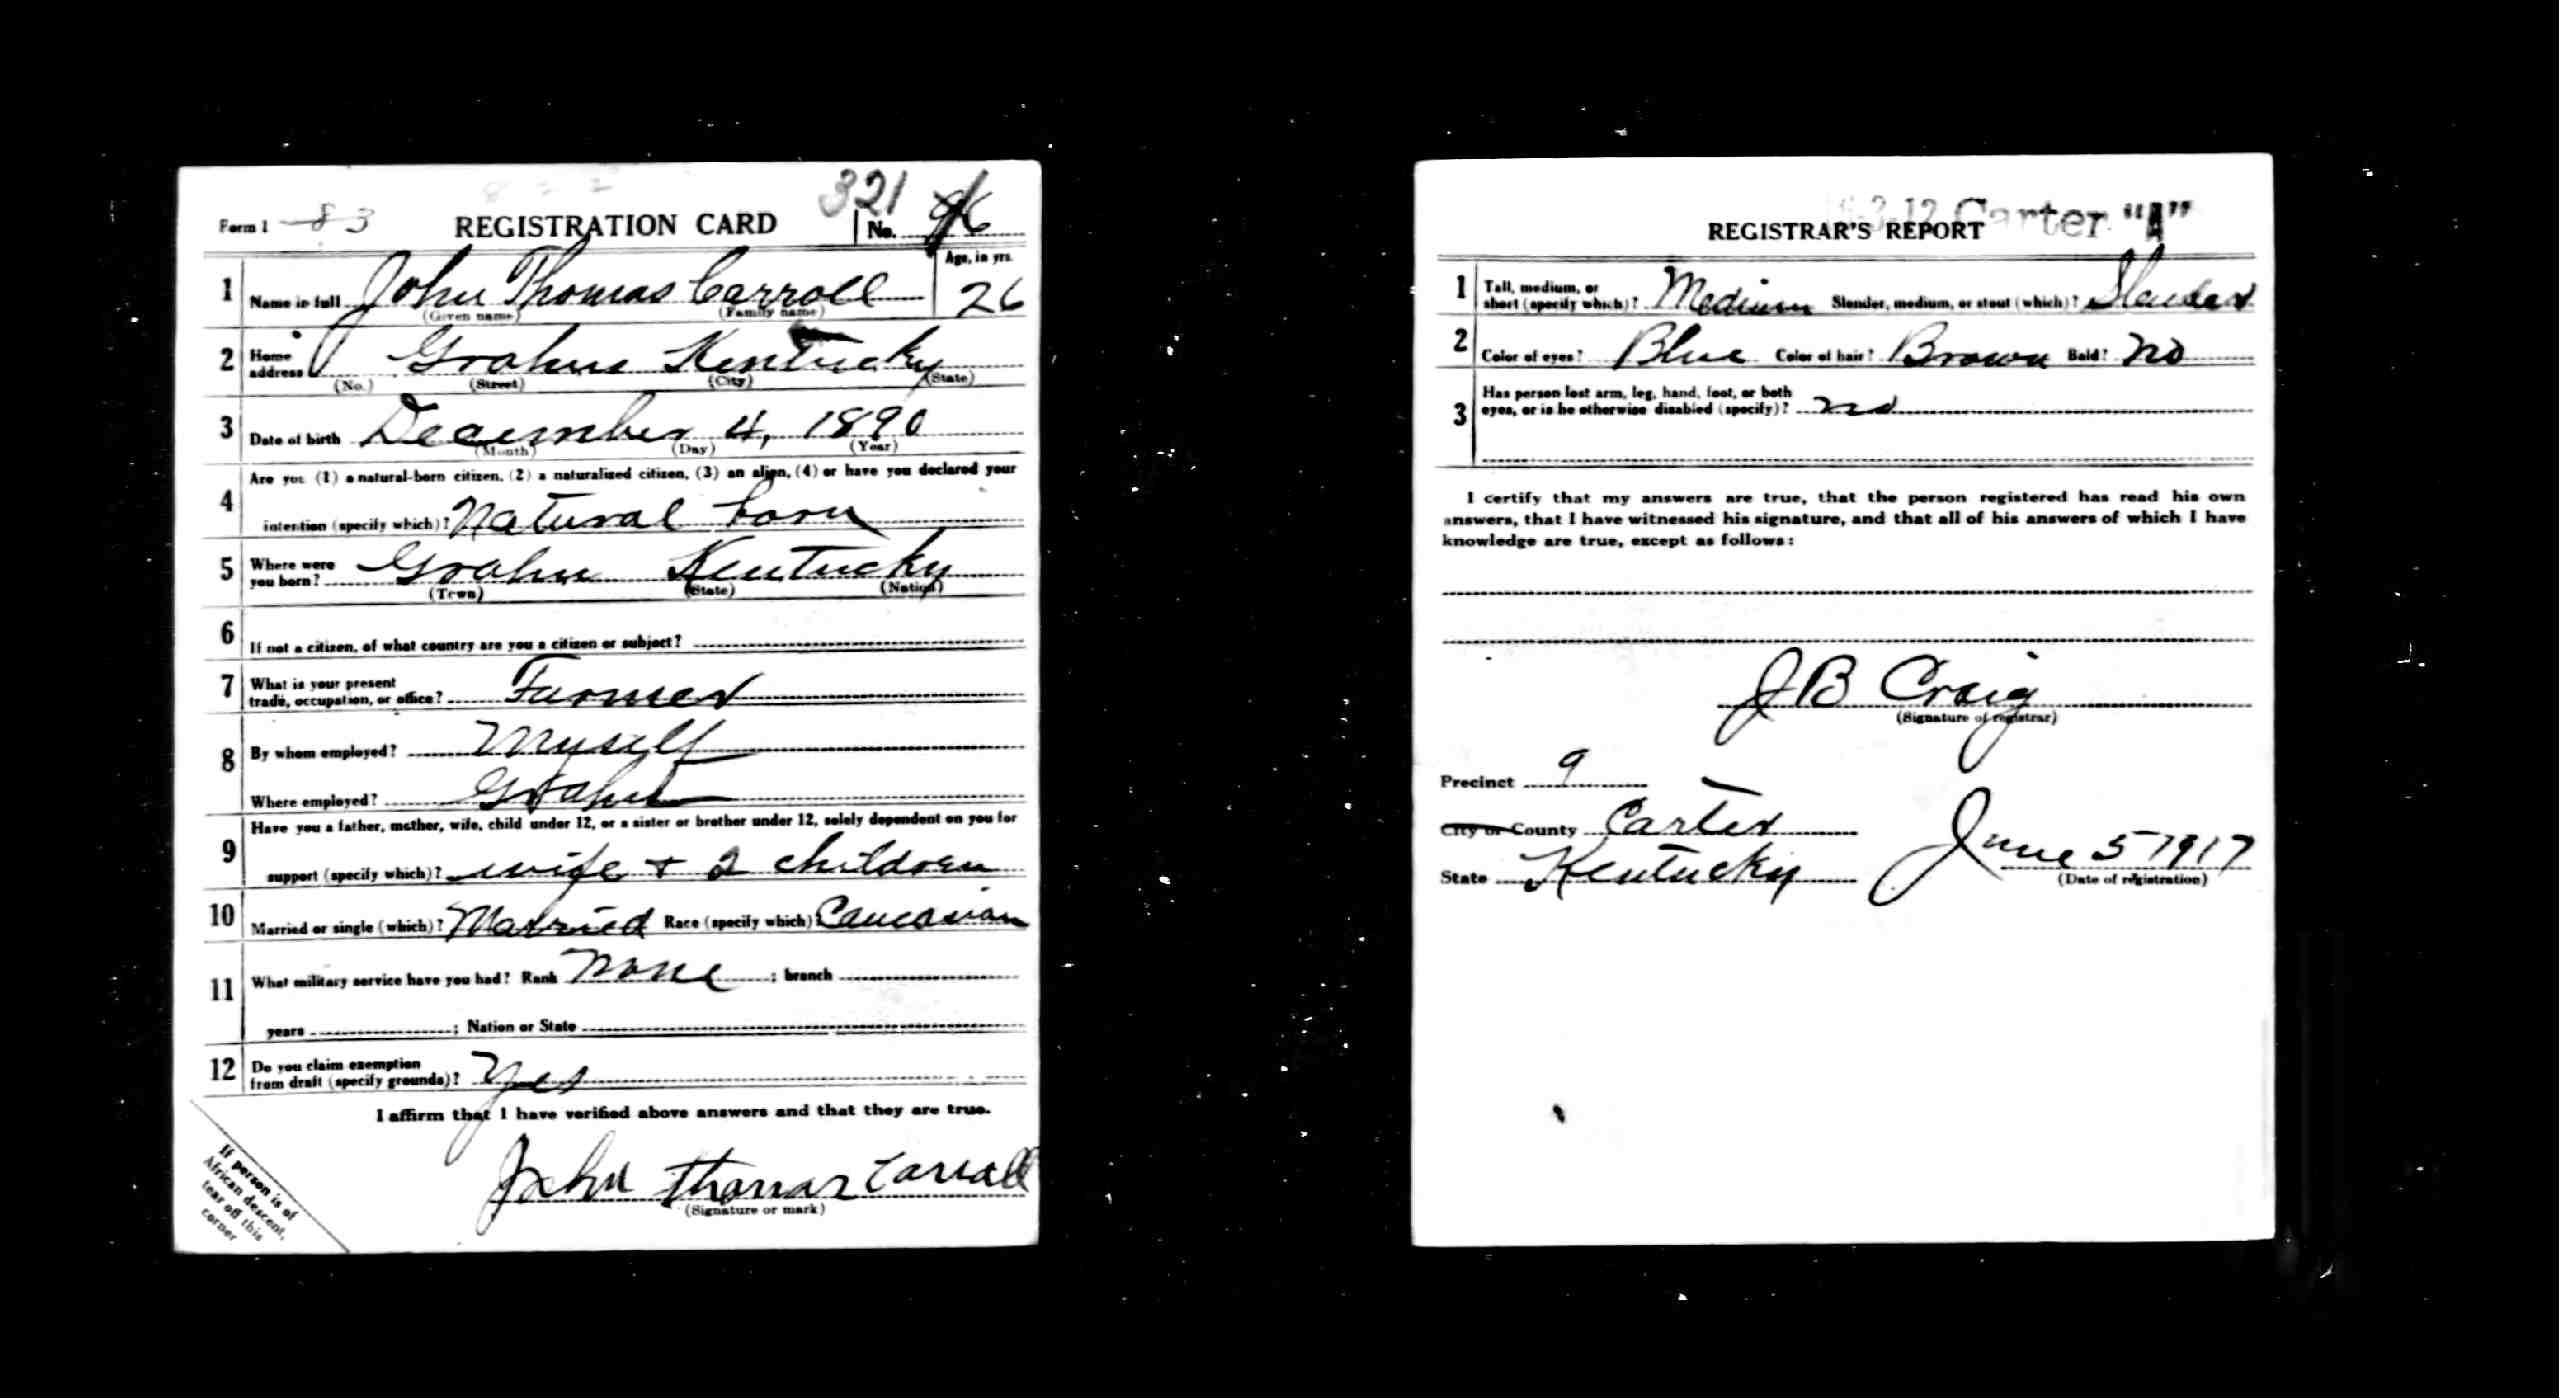 Form 1 83 REGISTRATION CARD 321 No. 96
1 Name in full John Thomas Carroll Age, in yrs. 26
(Given name) (Family name)
2 Home address Grahn Kentucky
(No.) (Street) (City) (State)
3 Date of birth December 4, 1890
(Month) (Day) (Year)
4 Are you (1) a natural-born citizen, (2) a naturalized citizen, (3) an alien, (4) or have you declared your
intention (specify which)? Natural born
5 Where were you born? Grahn Kentucky
(Town) (State) (Nation)
6 If not a citizen, of what country are you a citizen or subject?
7 What is your present
trade, occupation, or office? Farmer
8 By whom employed? Myself
Where employed? Grahn
9 Have you a father, mother, wife, child under 12, or a sister or brother under 12, solely dependent on you for
support (specify which)? wife + 2 children
10 Married or single (which)? Married Race (specify which)? Caucasian
11 What military service have you had? Rank None ; branch
years ; Nation or State
12 Do you claim exemption
from draft (specify grounds)? Yes
I affirm that I have verified above answers and that they are true.
John Thomas Carroll
(Signature or mark)
If person is of
African descent,
tear off this
corner
Carter "A"
REGISTRAR'S REPORT
1 Tall, medium, or
short (specify which)? Medium Slender, medium, or stout (which)? Slender
2 Color of eyes? Blue Color of hair? Brown Bald? No
3 Has person lost arm, leg, hand, foot, or both
eyes, or is he otherwise disabled (specify)? no
I certify that my answers are true, that the person registered has read his own
answers, that I have witnessed his signature, and that all of his answers of which I have
knowledge are true, except as follows:
J B Craig
(Signature of registrar)
Precinct 9
City or County Carter
State Kentucky June 5 1917
(Date of registration)